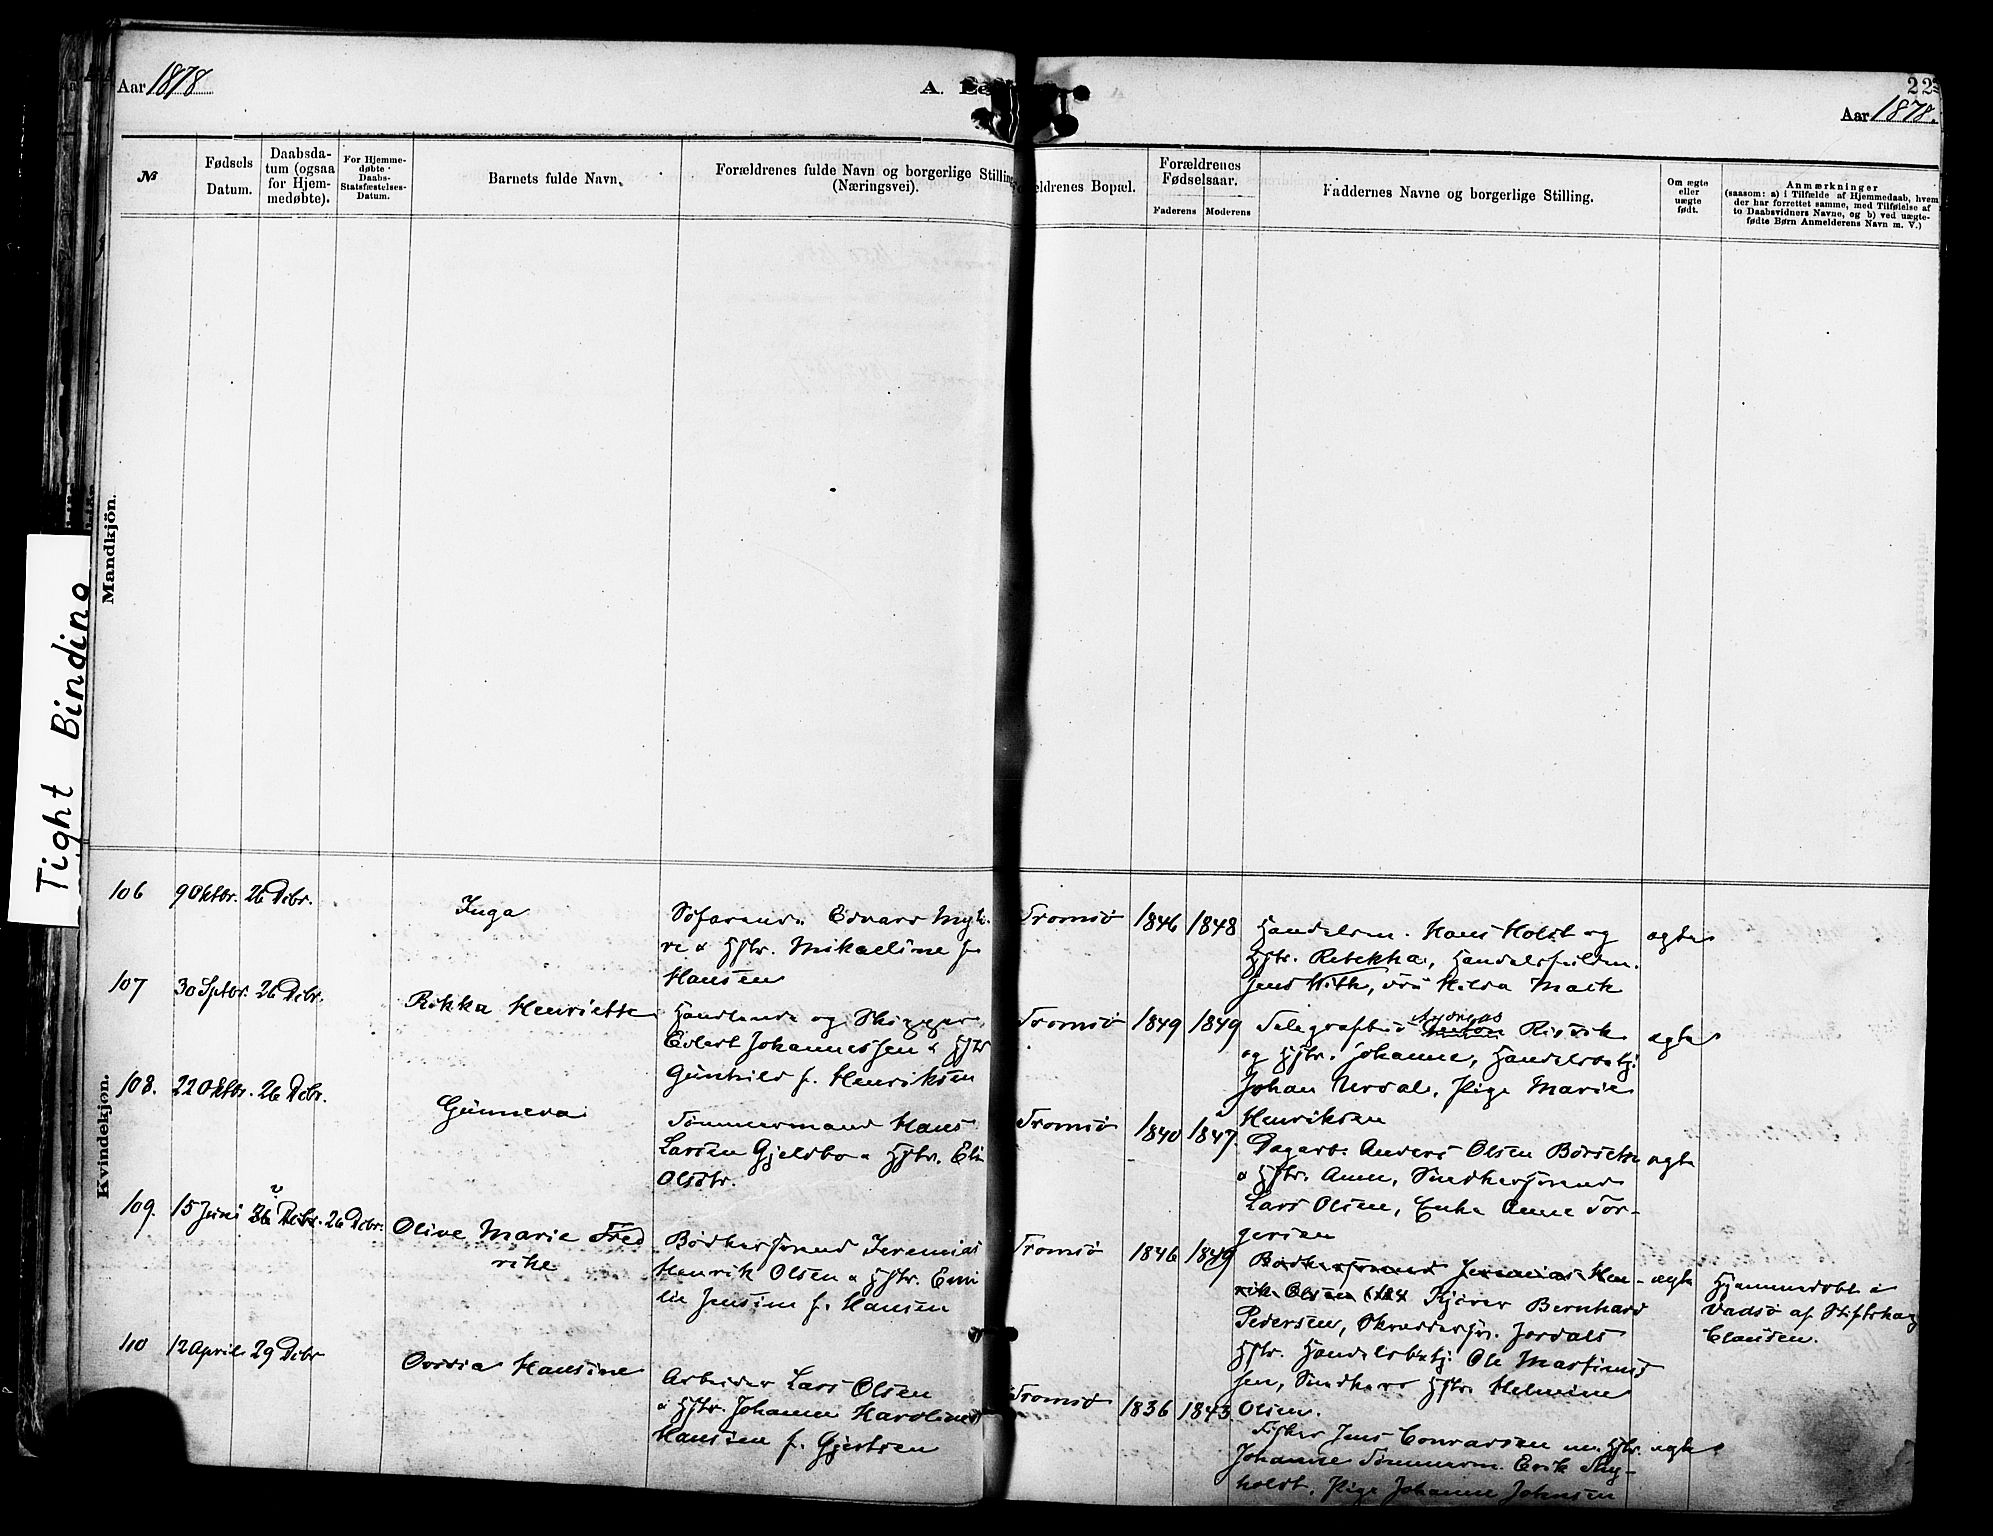 Aar 1878
A.
22
Aar 1878.
№
Fødsels Datum.
Daabsdatum (ogsaa for Hjemmedøbte).
For Hjemmedøbte Daabs-Statsfæstelses-Datum.
Barnets fulde Navn.
Forældrenes fulde Navn og borgerlige Stilling (Næringsvei).
Forældrenes Bopæl.
Forældrenes Fødselsaar.
Faderens
Moderens
Faddernes Navne og borgerlige Stilling.
Om ægte eller uægte født.
Anmærkninger
(saasom: a) i Tilfælde af Hjemmedaab, hvem
der har forrettet samme, med Tilføielse af
to Daabsvidners Navne, og b) ved uægte-
fødte Børn Anmelderens Navn m. V.)
Mandkjön.
Tight Binding
Kvindekjön.
106 9 Oktbr. 26 Debr.
Inga
Edvard
& Hstr. Mikaeline f.
Hansen
Tromsö 1846 1848
Handelsm. Hans Holst og
Hstr. Rebekka,
Jens With, Hilda Mack
ægte
107 30 Sptbr. 26 Debr.
Rikka Henriette
Handlende og Skipper
Edlert Johannessen & Hstr
Gunhild f. Henriksen
Tromsö 1849 1849
Andreas
og Hstr. Johanne,
Johan Nerdal, Pige Marie
Henriksen
ægte
108. 22 Oktbr. 26 Debr.
Gunneva
Tömmermand Hans
Larsen Gjeldbo & Hstr. Eli
Olsdtr.
Tromsö 1840 1847
Dagarb. Anders Olsen
& Hstr. Anne, Snedkersvend
Lars Olsen, Enke Anne Tor-
gersen
ægte
109. 15 Juni 26 Debr. 26 Debr.
Olive Marie Fred
rike
Bödkersvend Jeremias
Henrik Olsen & Hstr. Emi
lie Jensine f. Hansen
Tromsö 1846 1849
Bödkersvend Jeremias Hen-
rik Olsen Bernhard
Pedersen, Jordals
Hstr. Ole Martinus
sen, Hstr. Helmine
Olsen.
ægte
Hjemmedöbt i
Vadsö af
Clausen.
110 12 April 29 Debr
Ovidia Hansine
Arbeider Lars Olsen
& Hstr. Johanna Karoline
Hansen f. Gjertsen
Tromsö 1836 1843
Fisker Jens Conradsen m. Hstr.
Johanne Tömmerm. Erik Ny-
holdt, Pige Johanne Johnsen
ægte